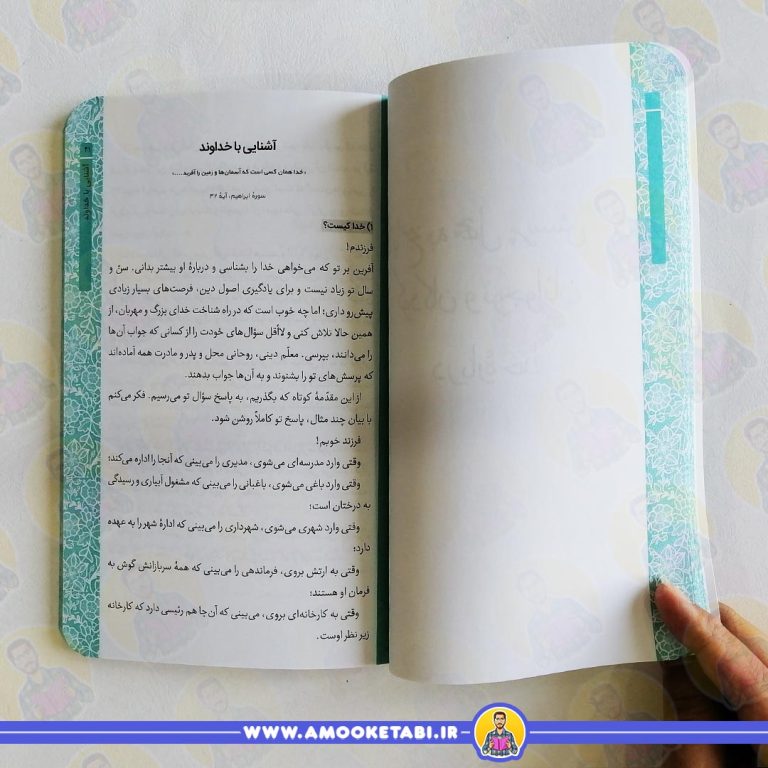 آشنایی با خداوند
«خدا همان کسی است که آسمان‌ها و زمین را آفرید.....»
سورهٔ ابراهیم، آیهٔ ۳۲
۱) خدا کیست؟
فرزندم!
آفرین بر تو که می‌خواهی خدا را بشناسی و دربارهٔ او بیشتر بدانی. سنّ و
سال تو زیاد نیست و برای یادگیری اصول دین، فرصت‌های بسیار زیادی
پیش‌رو داری؛ اما چه خوب است که در راه شناخت خدای بزرگ و مهربان، از
همین حالا تلاش کنی و لااقل سؤال‌های خودت را از کسانی که جواب آن‌ها
را می‌دانند، بپرسی. معلّم دینی، روحانی محل و پدر و مادرت همه آماده‌اند
که پرسش‌های تو را بشنوند و به آن‌ها جواب بدهند.
از این مقدّمهٔ کوتاه که بگذریم، به پاسخ سؤال تو می‌رسیم. فکر می‌کنم
با بیان چند مثال، پاسخ تو کاملاً روشن شود.
فرزند خوبم!
وقتی وارد مدرسه‌ای می‌شوی، مدیری را می‌بینی که آنجا را اداره می‌کند؛
وقتی وارد باغی می‌شوی، باغبانی را می‌بینی که مشغول آبیاری و رسیدگی
به درختان است؛
وقتی وارد شهری می‌شوی، شهرداری را می‌بینی که ادارهٔ شهر را به عهده
دارد؛
وقتی به ارتش بروی، فرماندهی را می‌بینی که همهٔ سربازانش گوش به
فرمان او هستند؛
وقتی به کارخانه‌ای بروی، می‌بینی که آن‌جا هم رئیسی دارد که کارخانه
زیر نظر اوست.
آشنایی با خداوند
WWW.AMOOKETABI.IR